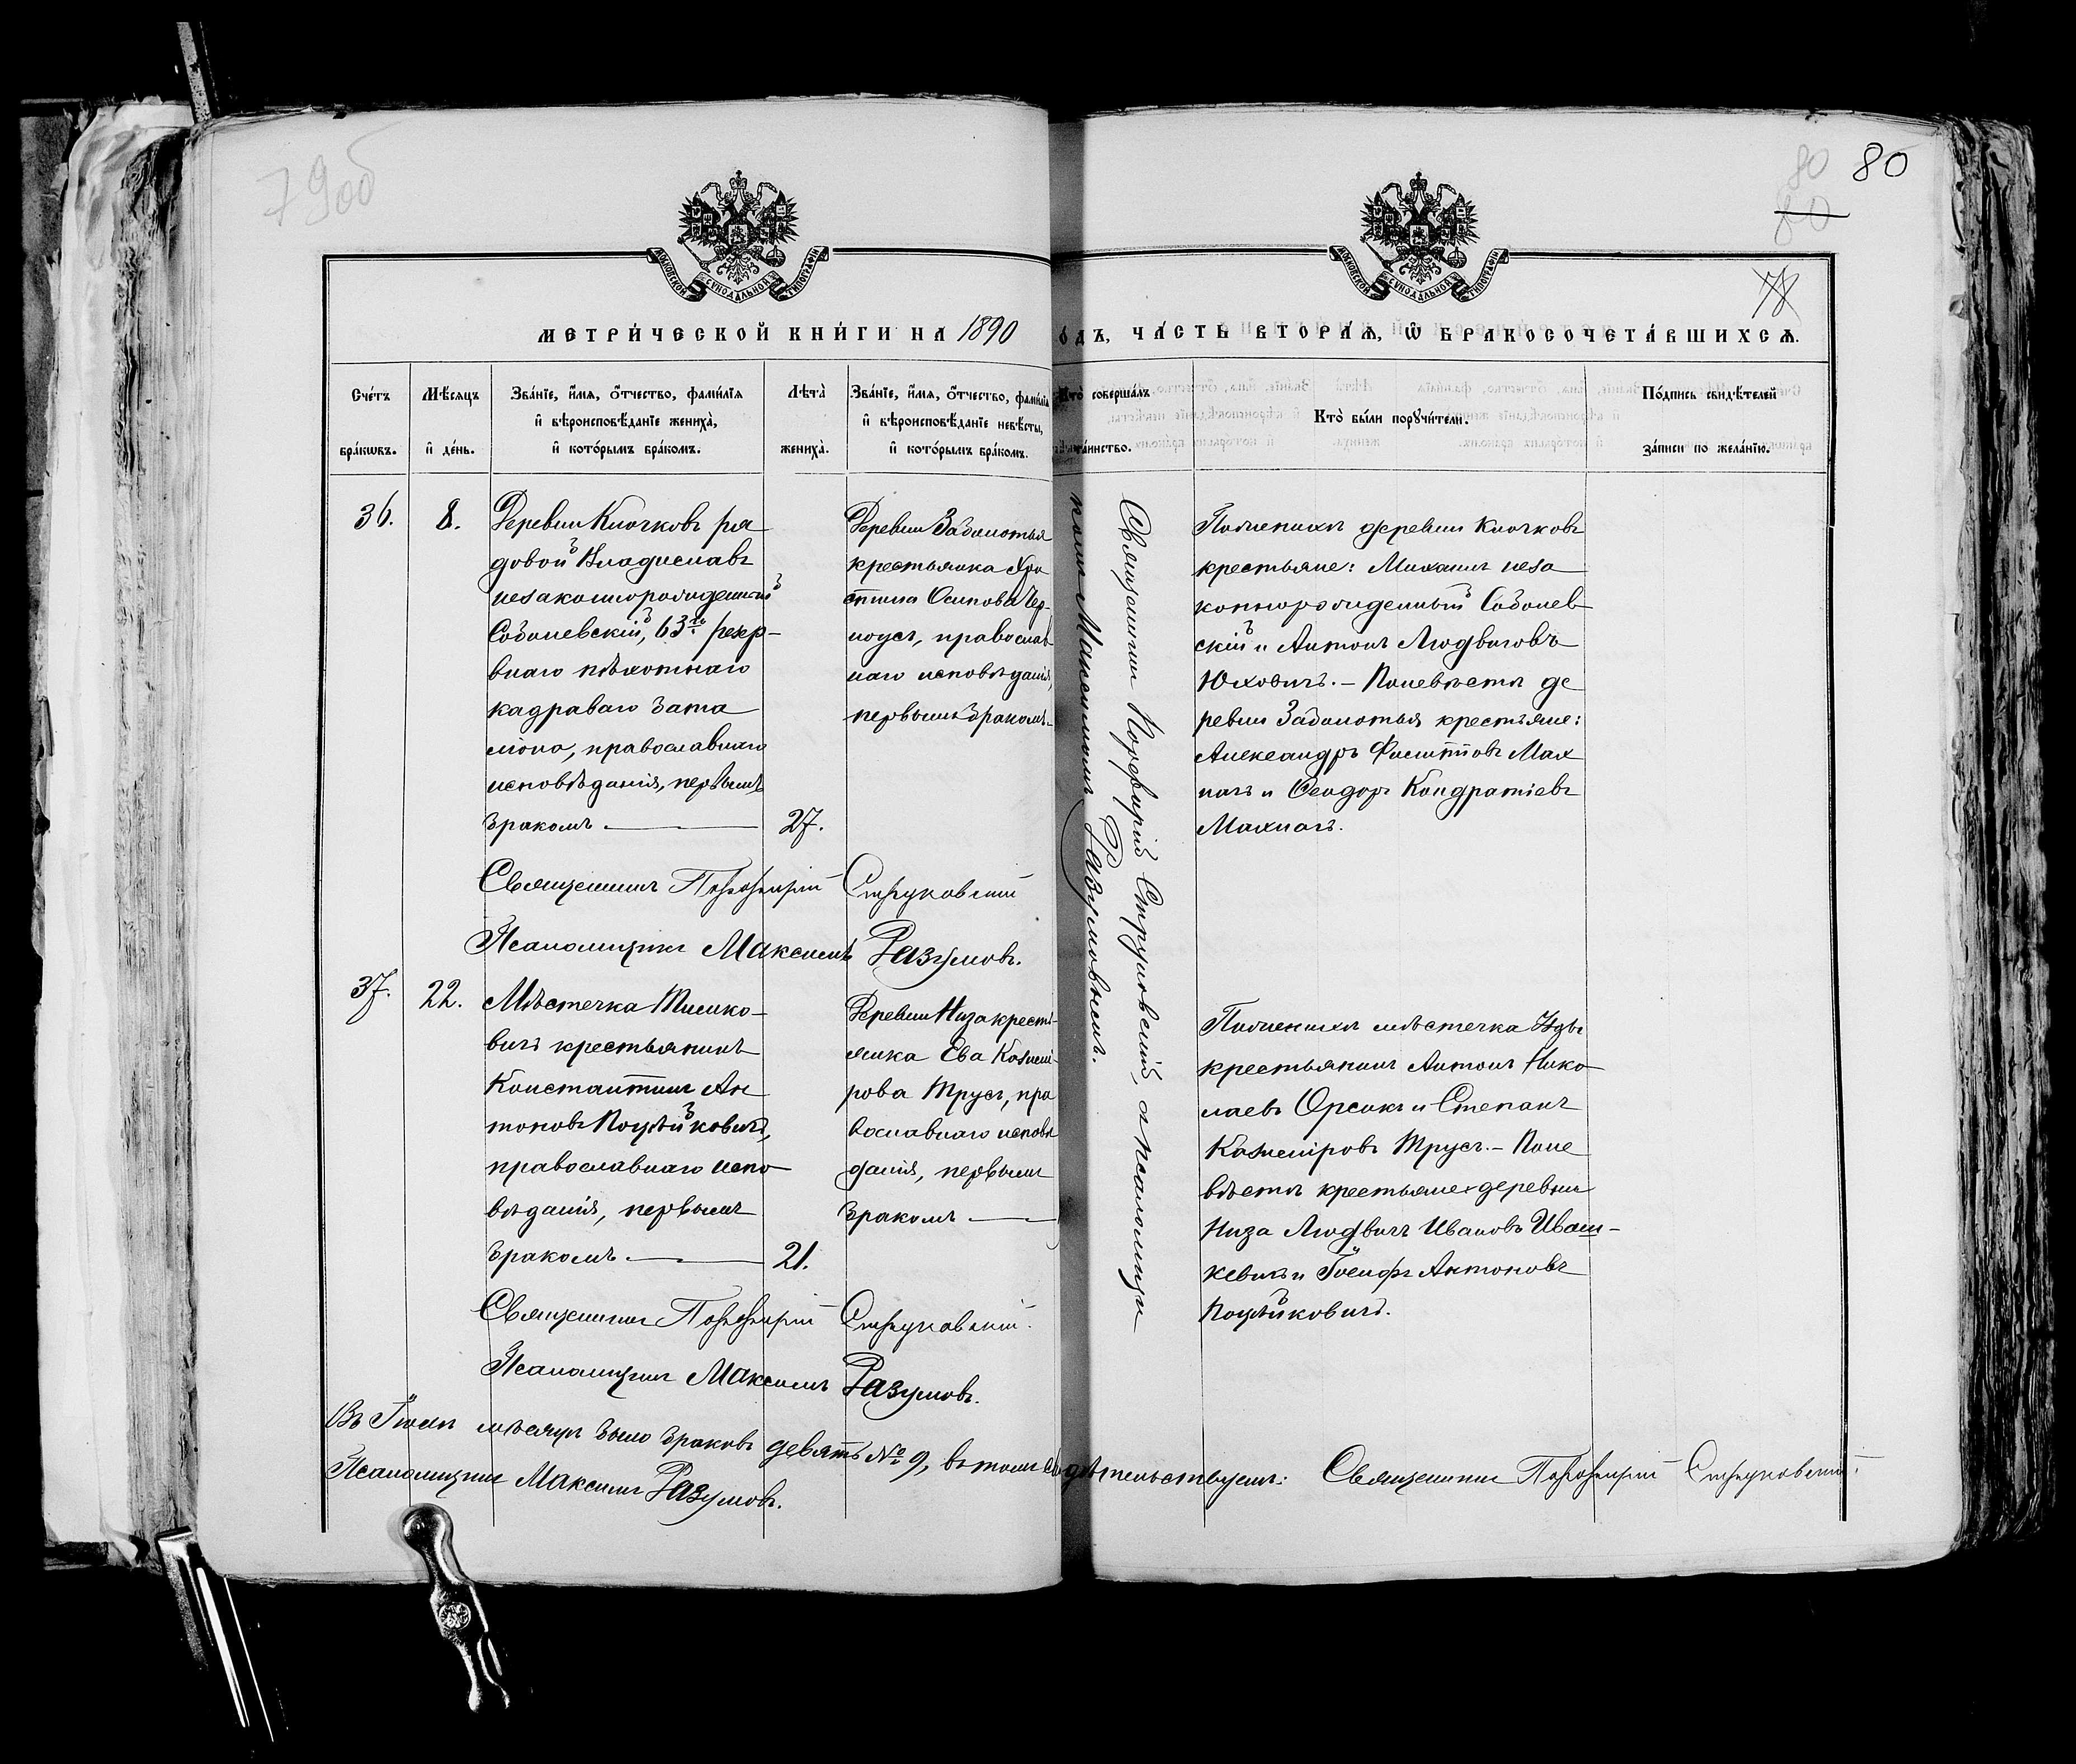 79об
80
80
80
78
МОСКОВСКОЙ СѴНОДАЛЬНОЙ ТИПОГРАФІИ
МОСКОВСКОЙ СѴНОДАЛЬНОЙ ТИПОГРАФІИ
МЕТРИ́ЧЕСКОЙ КНИ́ГИ НА 1890
о́дъ, ЧА́СТЬ ВТОРА́Ѧ, Ѡ҆ БРАКОСОЧЕТА́ВШИХСѦ.
Сче́тъ
бра́кѡвъ.
Мѣ́сяцъ
и҆ де́нь.
Зва́нїе, и҆́мя, ѻ҆́тчество, фами́лїя
и҆ вѣроисповѣ́данїе жениха̀,
и҆ кото́рымъ бра́комъ.
Лѣта̀
жениха̀.
Зва́нїе, и҆́мя, ѻ҆́тчество, фами́лїя
и҆ вѣроисповѣ́данїе невѣ́сты,
и҆ кото́рымъ бра́комъ.
Кто̀ соверша́лъ
та́инство.
Кто̀ бы́ли порꙋчи́тели.
По́дпись свидѣ́телей
за́писи по жела́нїю.
36.
8.
Деревни Клочковъ ря
довой Владиславъ
незаконнорожденный
Соболевскій, 63го резер-
внаго пѣхотнаго
кадраваго бата
ліона, православнаго
исповѣданія, первымъ
бракомъ
27.
Деревни Заболотья
крестьянка Хри
стина Осипова Чер-
ноусъ, православ
наго исповѣданія,
первымъ бракомъ.
Священникъ Порфирій Струковскій, и псаломщи
комъ Максимомъ Разумовымъ.
Пожениху деревни Клочковъ
крестьяне: Михаилъ неза
коннорожденный Соболев
скій и Антонъ Людвиговъ
Юховичъ. - Поневѣсты де
ревни Заболотья крестьяне:
Александръ Филипповъ Мах
начъ и Ѳеодоръ Кондратіевъ
Махначъ.
Священникъ Порфирій Струковскій
Псаломщикъ Максимъ Разумовъ.
37.
22.
Мѣстечка Тимко-
вичъ крестьянинъ
Константинъ Ан
тоновъ Поцѣйковичъ,
православнаго испо
вѣданія, первымъ
бракомъ
21.
Деревни Низа крестьи-
янка Ева Казимі-
рова Трусъ, пра
вославнаго исповѣ
данія, первымъ
бракомъ
Пожениху мѣстечка Уздъ
крестьянинъ Антонъ Нико
лаевъ Орсикъ и Степанъ
Казиміровъ Трусъ. - Поне
вѣсты крестьяне деревни
Низа Людвигъ Ивановъ Иваш-
кевичъ и Іосифъ Антоновъ
Поцѣйковичъ.
Священникъ Порфирій Струковскій.
Псаломщикъ Максимъ Разумовъ.
Въ Іюлѣ мѣсяцѣ было браковъ девять № 9, въ томъ свидѣтельствуемъ: Священникъ Порфирій Струковскій.
Псаломщикъ Максимъ Разумовъ.